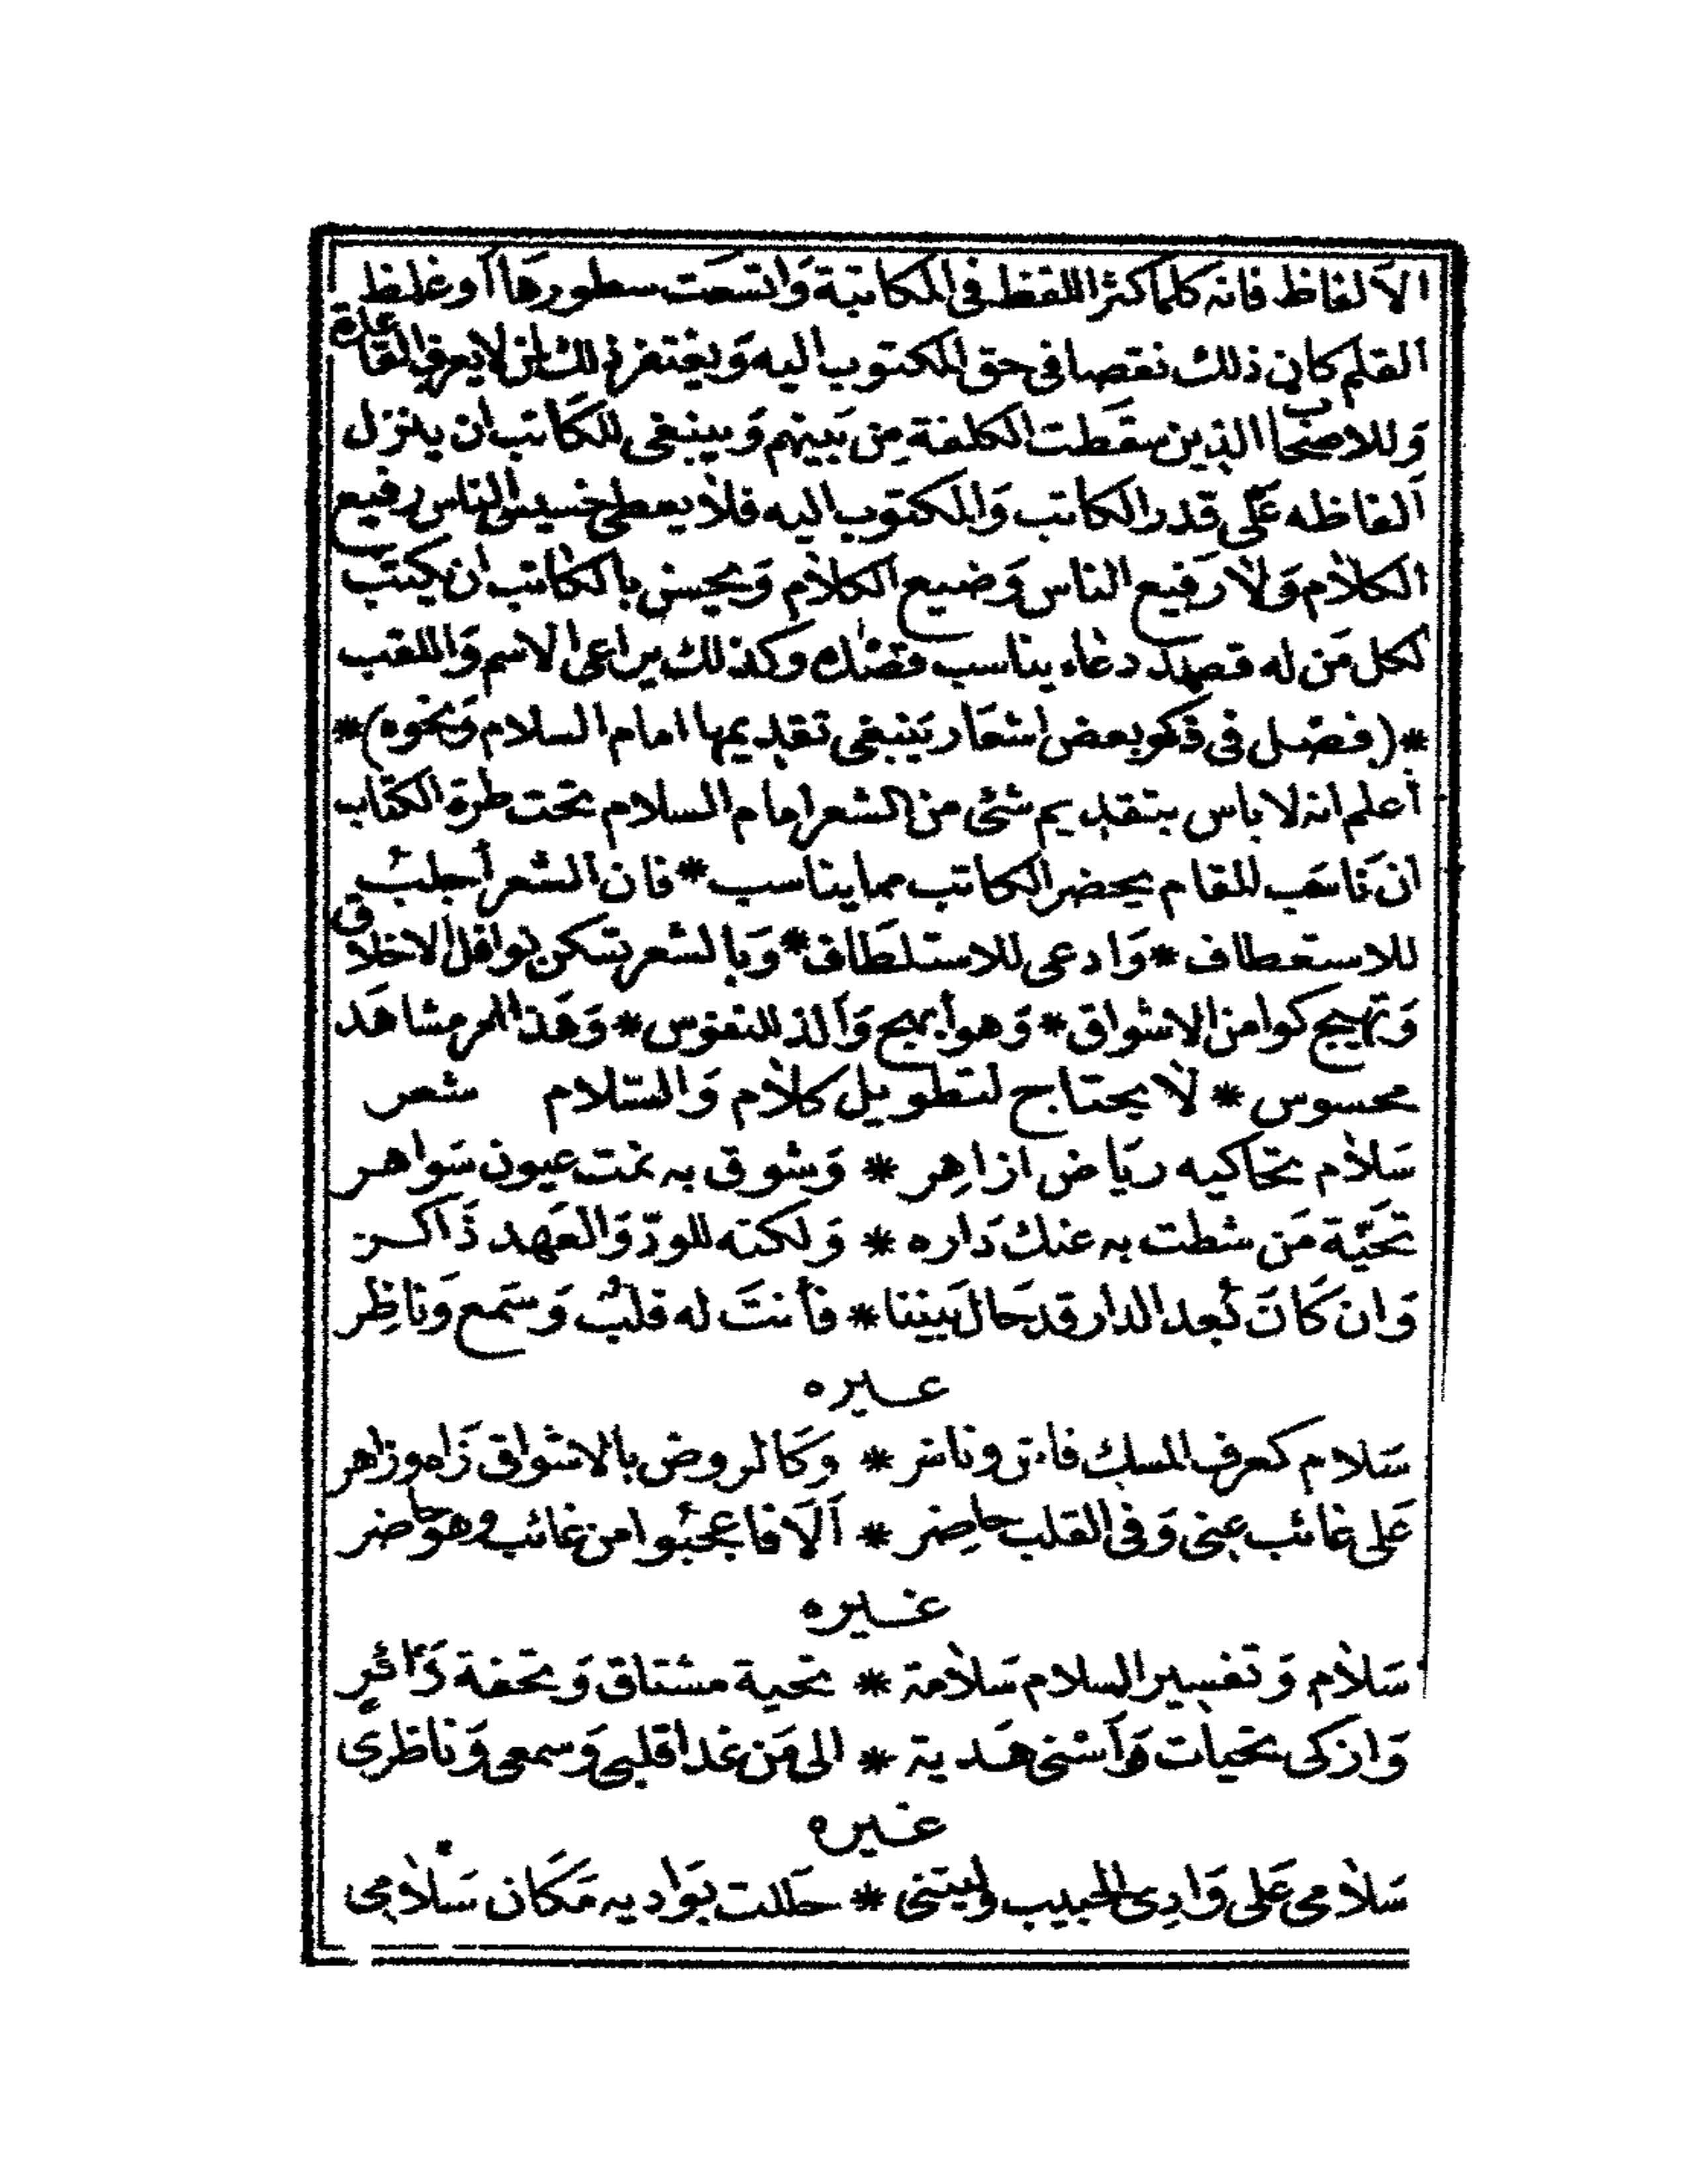 الألفاظ فانه كلما كثر اللفظ في المكاتبة وَاتسعَت سطورهَا أو غلظ
القلم كان ذلك نقصا في حق المكتوب اليه وَيغتفر ذلك لمن لا يعرف القاعدة
وَللاصحاب الذين سقَطت الكلفة مِن بَينهم وَينبغى للكَاتب ان ينزل
ألفاظه عَلى قدر الكاتب وَالمكتوب اليه فلا يعطى خسيس الناس رفيع
الكلام وَلا رَفيع الناس وَضيع الكلام وَيحسن بالكاتب ان يكتب
لكل مَن له قصد دعاء يناسب وكذلك يراعى الاسم وَاللقب
*(فصل في ذكر بعض اشعَار يَنبغى تقديمها امام السلام وَنحوه)*
أعلم انه لا باس بتقديم شئ من الشعر امام السلام تحت طرة الكتاب
ان نَاسَب المقام يحضر الكاتب مما يناسب * فان الشعر أجلبُ
للاستعطاف * وَادعى للاستلطَاف * وَبالشعر تسكن نوافل الاخلاق
وَتهيج كوامن الاشواق * وَهو أبهج وَألذ للنفوس * وَهَذا امر مشاهَد
محسوس * لَا يحتاج لتطويل كلام وَالسّلام شعر
سَلام تحاكيه ريَاض ازاهِر * وَشوق به نمت عيون سَواهر
تحَيّة مَن شطت به عنك دَاره * وَلكنه للودّ وَالعَهد ذَاكر
وَان كَانَ بُعد الدار قد حَال بَيننا * فأنتَ له قلبٌ وَسَمع وَناظِر
غيره
سَلام كعرف المسك فاتن وناشر * وَكَالروض بالاشواق زَاه وزاهر
عَلى غائب عنى وَفي القلب حاضِر * ألَا فاعجَبُوا من غائب وهو حاضر
غيره
سَلام وَتفسير السلام سَلامة * تحية مشتاق وَتحفة زَائرٍ
وَازكى تحيات وَأسْنى هَدية * الى مَن غدا قلبي وَسمعى وَناظرى
غيره
سَلامى عَلى وَادِى الحبيب وليتنى * حَللت بوَاديه مَكَان سَلامى